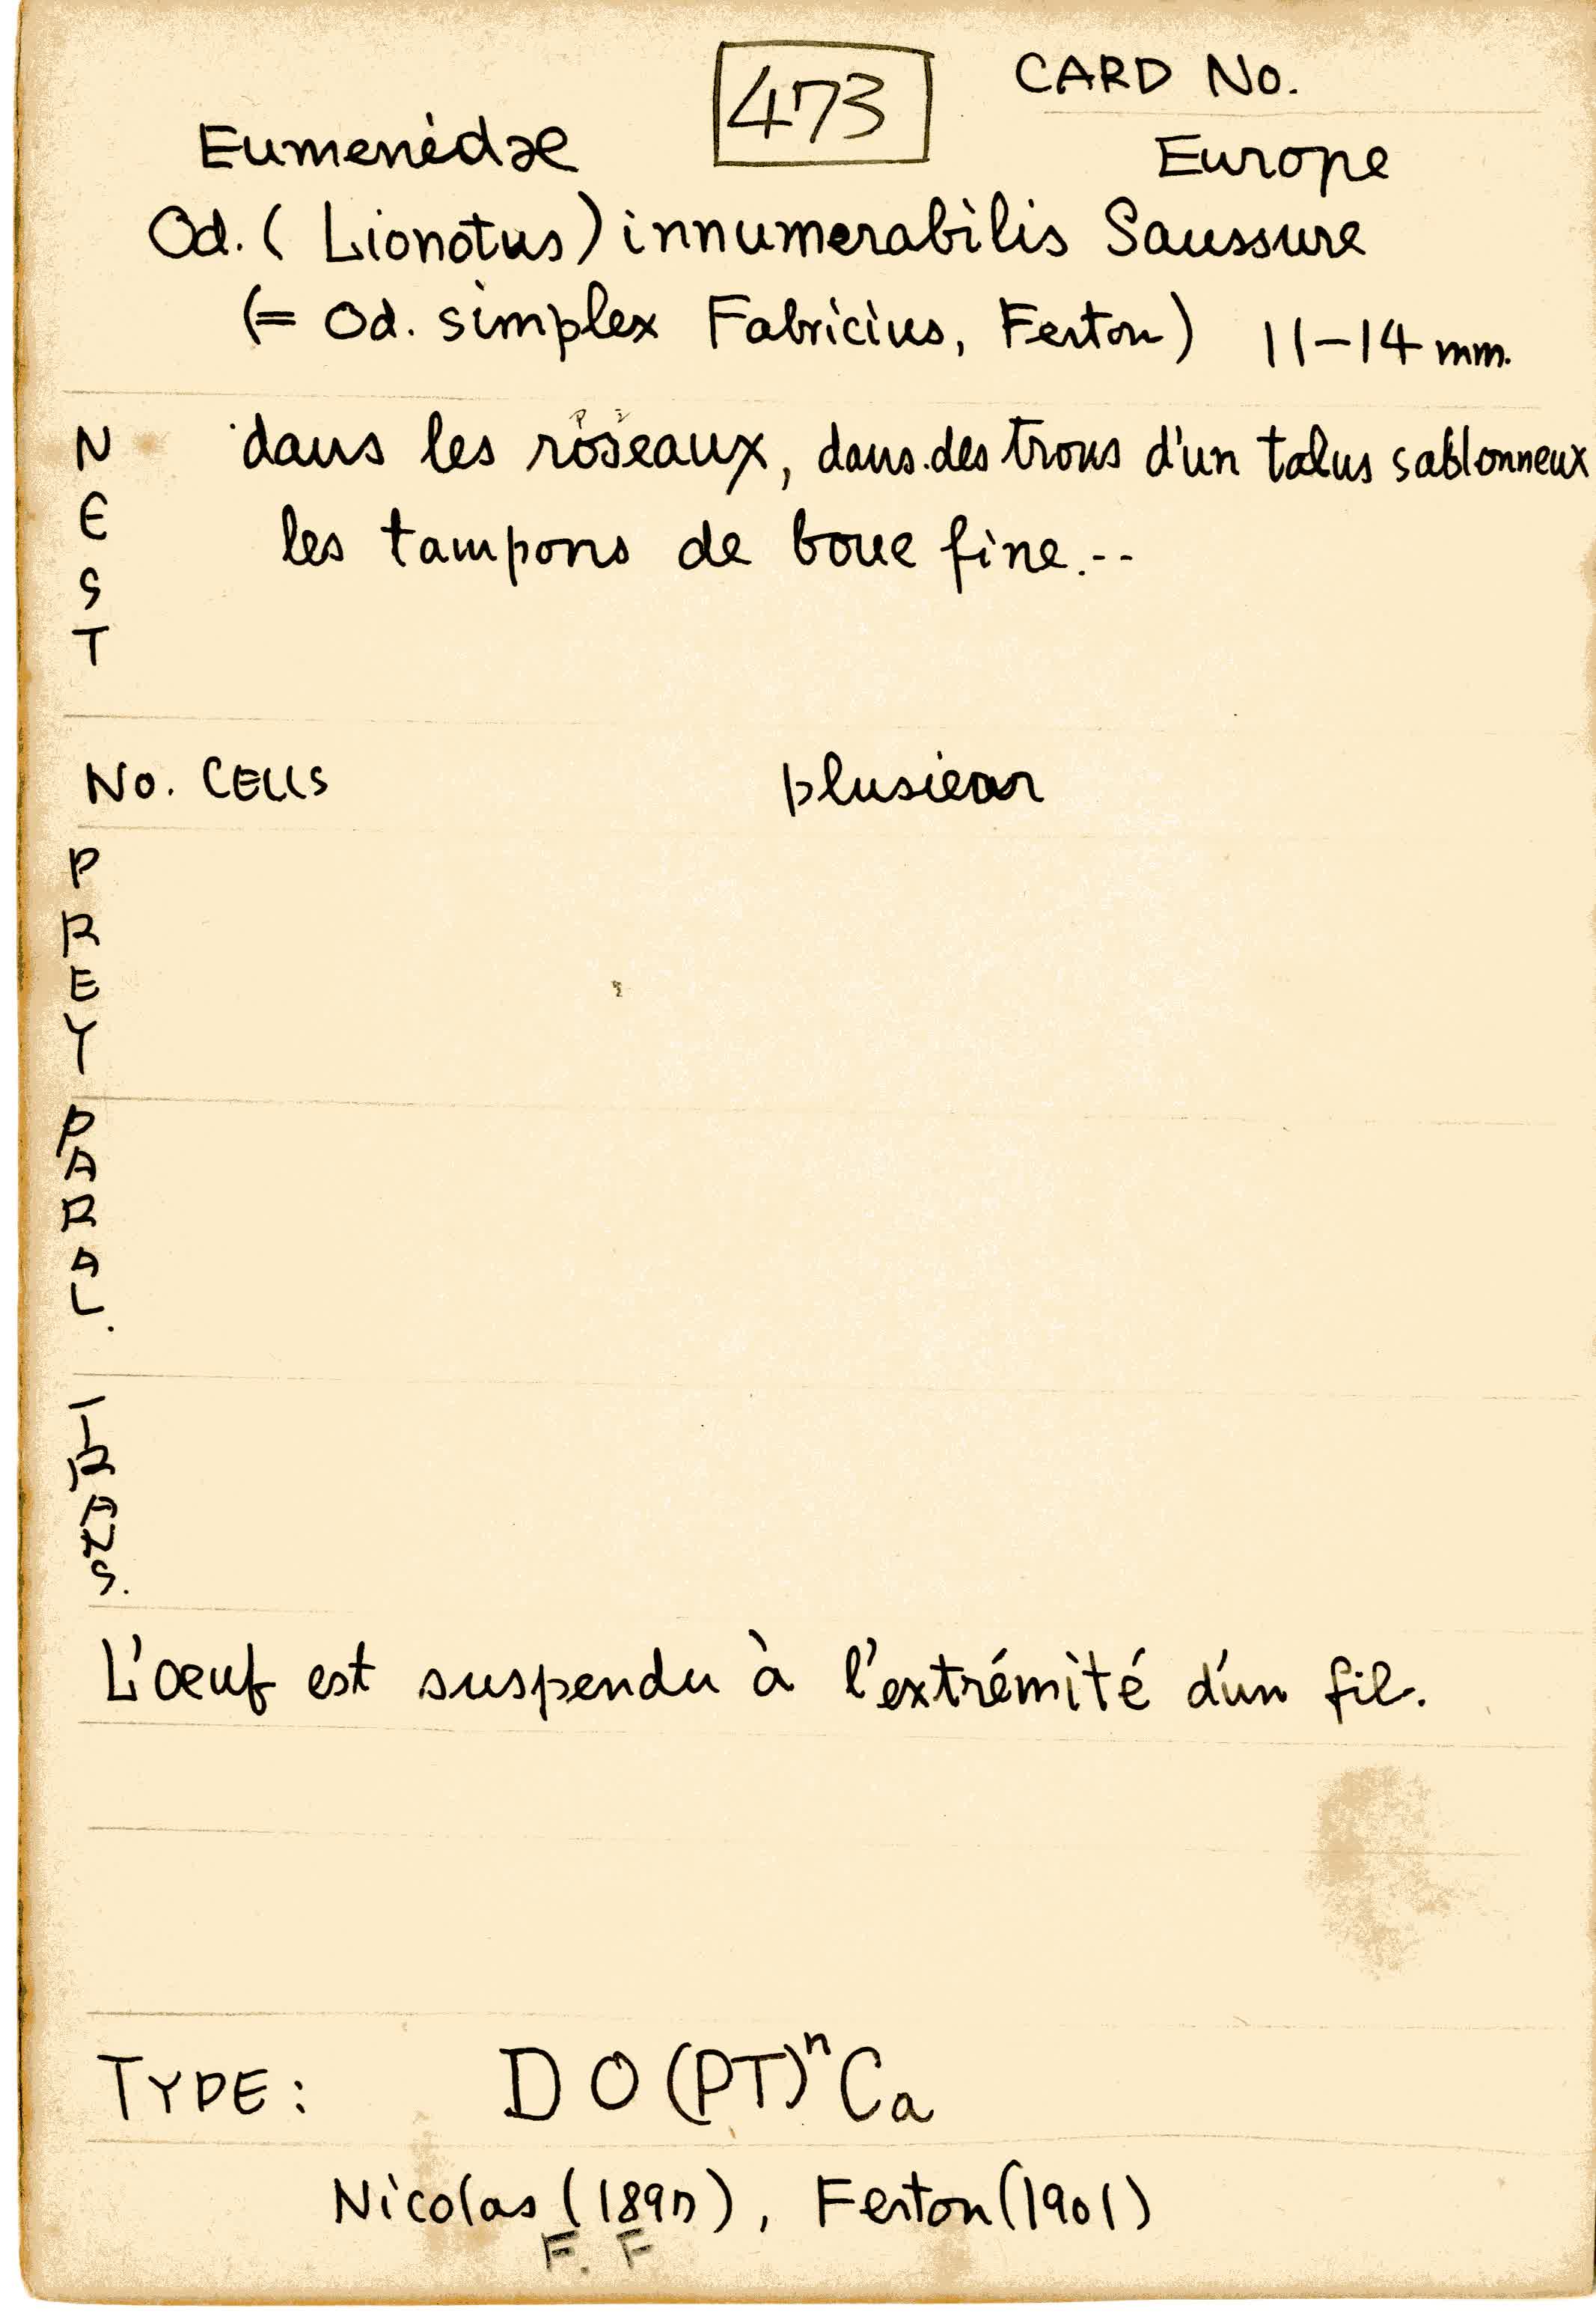 473 CARD No.
Eumenidæ Europe
Od. (Lionotus) innumerabilis Saussure
(= Od. simplex Fabricius, Ferton) 11-14 mm.
NEST dans les roseaux, dans des trous d'un talus sablonneux
les tampons de boue fine.--
No. CELLS plusieur
PREY
PARAL.
TRANS.
L'œuf est suspendu à l'extrémité d'un fil.
TYPE: D O (PT)ⁿ Ca
Nicolas (1897), Ferton (1901)
F. F